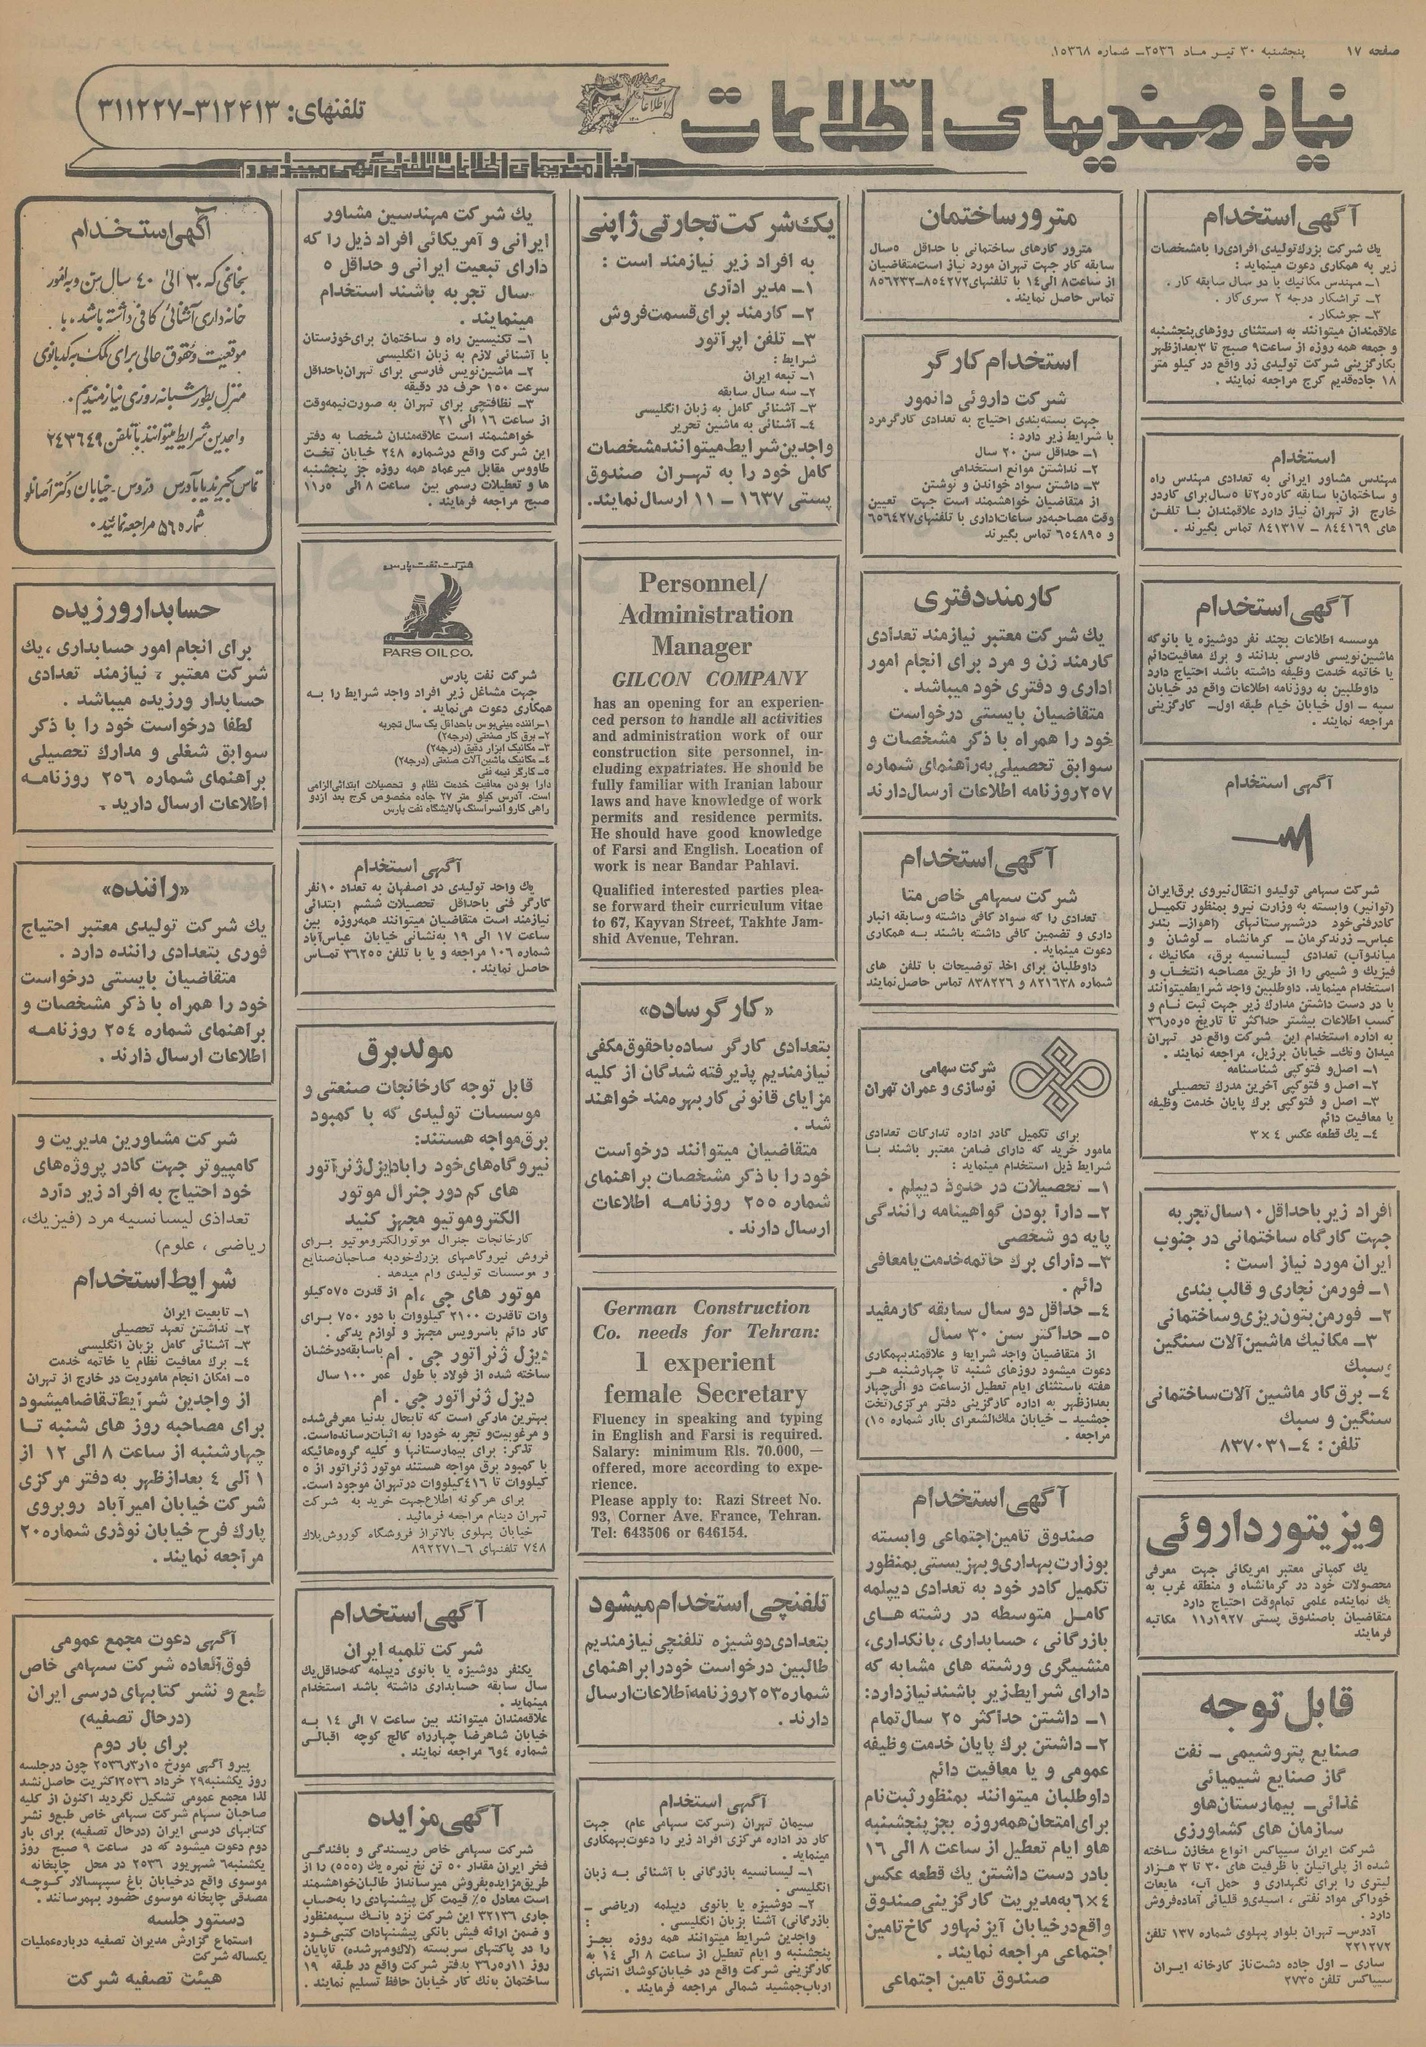 صفحه ۱۷
پنجشنبه ۳۰ تیر ماه ۲۵۳۶ــ شماره ۱۵۳۶۸
نیازمندیهای اطلاعات
تلفنهای: ۳۱۲۴۱۳-۳۱۱۲۲۷
نیازمندیهای اطلاعات تلفنی آگهی میپذیرد
آگهی استخدام
یك شرکت بزرگ تولیدی افرادی را بامشخصات
زیر به همکاری دعوت مینماید :
۱ــ مهندس مکانیك با دو سال سابقه کار .
۲ــ تراشکار درجه ۲ سری کار .
۳ــ جوشکار .
علاقمندان میتوانند به استثنای روزهای پنجشنبه
و جمعه همه روزه از ساعت ۹ صبح تا ۳ بعدازظهر
بکارگزینی شرکت تولیدی زر واقع در کیلو متر
۱۸ جاده قدیم کرج مراجعه نمایند .
استخدام
مهندس مشاور ایرانی به تعدادی مهندس راه
و ساختمان با سابقه کار ۲ تا ۵ سال برای کار در
خارج از تهران نیاز دارد علاقمندان با تلفن
های ۸۴٤۱۶۹ – ۸٤۱۳۱۷ تماس بگیرند .
آگهی استخدام
موسسه اطلاعات بچند نفر دوشیزه یا بانو که
ماشین نویسی فارسی بدانند و برك معافیت دائم
یا خاتمه خدمت وظیفه داشته باشد احتیاج دارد
داوطلبین به روزنامه اطلاعات واقع در خیابان
سپه – اول خیابان خیام طبقه اول– کارگزینی
مراجعه نمایند .
آگهی استخدام
شرکت سهامی تولید و انتقال نیروی برق ایران
(توانیر) وابسته به وزارت نیرو بمنظور تکمیل
کادر فنی خود در شهرستانهای (اهواز– بندر
عباس– زرند کرمان – کرمانشاه – لوشان و
میاندوآب) تعدادی لیسانسیه برق، مکانیك ،
فیزیك و شیمی را از طریق مصاحبه انتخاب و
استخدام مینماید. داوطلبین واجد شرایط میتوانند
با در دست داشتن مدارك زیر جهت ثبت نام و
کسب اطلاعات بیشتر حداکثر تا تاریخ ۳۶ر۵ر۵
به اداره استخدام این شرکت واقع در تهران
میدان ونك– خیابان برزیل، مراجعه نمایند .
۱– اصل و فتوکپی شناسنامه
۲– اصل و فتوکپی آخرین مدرك تحصیلی
۳– اصل و فتوکپی برك پایان خدمت وظیفه
یا معافیت دائم
٤– یك قطعه عکس ٤ × ۳
افراد زیر با حداقل ۱۰ سال تجربه
جهت کارگاه ساختمانی در جنوب
ایران مورد نیاز است :
۱– فورمن نجاری و قالب بندی
۲– فورمن بتون ریزی و ساختمانی
۳– مکانیك ماشین آلات سنگین
و سبك
٤– برق کار ماشین آلات ساختمانی
سنگین و سبك
تلفن : ٤–۸۳۷۰۳۱
ویزیتور داروئی
یك کمپانی معتبر امریکائی جهت معرفی
محصولات خود در کرمانشاه و منطقه غرب به
یك نماینده علمی تمام وقت احتیاج دارد
متقاضیان با صندوق پستی ۱۱ر۱۹۲۷ مکاتبه
فرمایند
قابل توجه
صنایع پتروشیمی – نفت
گاز صنایع شیمیائی
غذائی– بیمارستان ها و
سازمان های کشاورزی
شرکت ایران سیپاکس انواع مخازن ساخته
شده از پلی اتیلن با ظرفیت های ۳۰ تا ۳ هزار
لیتری را برای نگهداری و حمل آب، مایعات
خوراکی مواد نفتی ، اسیدی و قلیائی آماده فروش
دارد .
آدرس– تهران بلوار پهلوی شماره ۱۳۷ تلفن
۲۲۱۲۷۲
ساری – اول جاده دشت ناز کارخانه ایران
سیپاکس تلفن ۲۷۳۵
مترور ساختمان
مترور کارهای ساختمانی با حداقل ۵ سال
سابقه کار جهت تهران مورد نیاز است متقاضیان
از ساعت ۸ الی ۱٤ با تلفنهای ۸۵٤۲۷۲–۸۵۶۲۳۲
تماس حاصل نمایند .
استخدام کارگر
شرکت داروئی دانمور
جهت بسته بندی احتیاج به تعدادی کارگر مرد
با شرایط زیر دارد :
۱– حداقل سن ۲۰ سال
۲– نداشتن موانع استخدامی
۳– داشتن سواد خواندن و نوشتن
از متقاضیان خواهشمند است جهت تعیین
وقت مصاحبه در ساعات اداری با تلفنهای ۶۵۶٤۲۷
و ۶۵٤۸۹۵ تماس بگیرند
کارمند دفتری
یك شرکت معتبر نیازمند تعدادی
کارمند زن و مرد برای انجام امور
اداری و دفتری خود میباشد .
متقاضیان بایستی درخواست
خود را همراه با ذکر مشخصات و
سوابق تحصیلی به راهنمای شماره
۲۵۷ روزنامه اطلاعات ارسال دارند
آگهی استخدام
شرکت سهامی خاص متا
تعدادی را که سواد کافی داشته و سابقه انبار
داری و تضمین کافی داشته باشند به همکاری
دعوت مینماید .
داوطلبان برای اخذ توضیحات با تلفن های
شماره ۸۲۱۶۳۸ و ۸۳۸۲۲۶ تماس حاصل نمایند
شرکت سهامی
نوسازی و عمران تهران
برای تکمیل کادر اداره تدارکات تعدادی
مامور خرید که دارای ضامن معتبر باشند با
شرایط ذیل استخدام مینماید :
۱– تحصیلات در حدود دیپلم .
۲– دارا بودن گواهینامه رانندگی
پایه دو شخصی
۳– دارای برك خاتمه خدمت یا معافی
دائم .
٤– حداقل دو سال سابقه کار مفید
۵– حداکثر سن ۳۰ سال
از متقاضیان واجد شرایط و علاقمند بهمکاری
دعوت میشود روزهای شنبه تا چهارشنبه هر
هفته باستثنای ایام تعطیل از ساعت دو الی چهار
بعدازظهر به اداره کارگزینی دفتر مرکزی (تخت
جمشید – خیابان ملك الشعرای بهار شماره ۱۵)
مراجعه .
آگهی استخدام
صندوق تامین اجتماعی وابسته
بوزارت بهداری و بهزیستی بمنظور
تکمیل کادر خود به تعدادی دیپلمه
کامل متوسطه در رشته های
بازرگانی ، حسابداری ، بانکداری،
منشیگری و رشته های مشابه که
دارای شرایط زیر باشند نیاز دارد:
۱– داشتن حداکثر ۲۵ سال تمام
۲– داشتن برك پایان خدمت وظیفه
عمومی و یا معافیت دائم
داوطلبان میتوانند بمنظور ثبت نام
برای امتحان همه روزه بجز پنجشنبه
ها و ایام تعطیل از ساعت ۸ الی ۱۶
با در دست داشتن یك قطعه عکس
۶×٤ به مدیریت کارگزینی صندوق
واقع در خیابان آیزنهاور کاخ تامین
اجتماعی مراجعه نمایند .
صندوق تامین اجتماعی
یک شرکت تجارتی ژاپنی
به افراد زیر نیازمند است :
۱– مدیر اداری
۲– کارمند برای قسمت فروش
۳– تلفن اپراتور
شرایط :
۱– تبعه ایران
۲– سه سال سابقه
۳– آشنائی کامل به زبان انگلیسی
٤– آشنائی به ماشین تحریر
واجدین شرایط میتوانند مشخصات
کامل خود را به تهران صندوق
پستی ۱۶۳۷ – ۱۱ ارسال نمایند.
Personnel/
Administration
Manager
GILCON COMPANY
has an opening for an experien-
ced person to handle all activities
and administration work of our
construction site personnel, in-
cluding expatriates. He should be
fully familiar with Iranian labour
laws and have knowledge of work
permits and residence permits.
He should have good knowledge
of Farsi and English. Location of
work is near Bandar Pahlavi.
Qualified interested parties plea-
se forward their curriculum vitae
to 67, Kayvan Street, Takhte Jam-
shid Avenue, Tehran.
«کارگر ساده»
بتعدادی کارگر ساده با حقوق مکفی
نیازمندیم پذیرفته شدگان از کلیه
مزایای قانونی کار بهره مند خواهند
شد .
متقاضیان میتوانند درخواست
خود را با ذکر مشخصات براهنمای
شماره ۲۵۵ روزنامه اطلاعات
ارسال دارند .
German Construction
Co. needs for Tehran:
1 experient
female Secretary
Fluency in speaking and typing
in English and Farsi is required.
Salary: minimum Rls. 70.000, —
offered, more according to expe-
rience.
Please apply to: Razi Street No.
93, Corner Ave. France, Tehran.
Tel: 643506 or 646154.
تلفنچی استخدام میشود
بتعدادی دوشیزه تلفنچی نیازمندیم
طالبین درخواست خود را براهنمای
شماره ۲۵۳ روزنامه اطلاعات ارسال
دارند .
آگهی استخدام
سیمان تهران (شرکت سهامی عام) جهت
کار در اداره مرکزی افراد زیر را دعوت بهمکاری
مینماید.
۱– لیسانسیه بازرگانی با آشنائی به زبان
انگلیسی .
۲– دوشیزه یا بانوی دیپلمه (ریاضی –
بازرگانی) آشنا بزبان انگلیسی .
واجدین شرایط میتوانند همه روزه بجز
پنجشنبه و ایام تعطیل از ساعت ۸ الی ۱٤ به
کارگزینی شرکت واقع در خیابان کوشك انتهای
ارباب جمشید شمالی مراجعه فرمایند .
یك شرکت مهندسین مشاور
ایرانی و آمریکائی افراد ذیل را که
دارای تبعیت ایرانی و حداقل ۵
سال تجربه باشند استخدام
مینمایند .
۱– تکنیسین راه و ساختمان برای خوزستان
با آشنائی لازم به زبان انگلیسی
۲– ماشین نویس فارسی برای تهران با حداقل
سرعت ۱۵۰ حرف در دقیقه
۳– نظافتچی برای تهران به صورت نیمه وقت
از ساعت ۱۶ الی ۲۱
خواهشمند است علاقه مندان شخصا به دفتر
این شرکت واقع در شماره ۲٤۸ خیابان تخت
طاووس مقابل میرعماد همه روزه جز پنجشنبه
ها و تعطیلات رسمی بین ساعت ۸ الی ۱۱
صبح مراجعه فرمایند .
شرکت نفت پارس
PARS OIL CO.
شرکت نفت پارس
جهت مشاغل زیر افراد واجد شرایط را به
همکاری دعوت می نماید .
۱– راننده مینی بوس باحداقل یك سال تجربه
۲– برق کار صنعتی (درجه ۲)
۳– مکانیك ابزار دقیق (درجه ۲)
٤– مکانیك ماشین آلات صنعتی (درجه ۲)
۵– کارگر نیمه فنی
دارا بودن معافیت خدمت نظام و تحصیلات ابتدائی الزامی
است. آدرس کیلو متر ۲۷ جاده مخصوص کرج بعد از دو
راهی کاروانسراسنگ پالایشگاه نفت پارس
آگهی استخدام
یك واحد تولیدی در اصفهان به تعداد ۱۰ نفر
کارگر فنی با حداقل تحصیلات ششم ابتدائی
نیازمند است متقاضیان میتوانند همه روزه بین
ساعت ۱۷ الی ۱۹ به نشانی خیابان عباس آباد
شماره ۱۰۶ مراجعه و یا با تلفن ۳۶۲۵۵ تماس
حاصل نمایند .
مولد برق
قابل توجه کارخانجات صنعتی و
موسسات تولیدی که با کمبود
برق مواجه هستند:
نیروگاه های خود را با دیزل ژنراتور
های کم دور جنرال موتور
الکتروموتیو مجهز کنید
کارخانجات جنرال موتور الکتروموتیو برای
فروش نیروگاههای بزرك خود به صاحبان صنایع
و موسسات تولیدی وام میدهد .
موتور های جی ، ام از قدرت ۵۷۵ کیلو
وات تا قدرت ۲۱۰۰ کیلووات با دور ۷۵۰ برای
کار دائم با سرویس مجهز و لوازم یدکی .
دیزل ژنراتور جی . ام با سابقه درخشان
ساخته شده از فولاد با طول عمر ۱۰۰ سال
دیزل ژنراتور جی . ام
بهترین مارکی است که تابحال بدنیا معرفی شده
و مرغوبیت و تجربه خود را به اثبات رسانده است.
تذکر: برای بیمارستانها و کلیه گروه هائیکه
با کمبود برق مواجه هستند موتور ژنراتور از ۵
کیلووات تا ٤۱۶ کیلووات در تهران موجود است.
برای هرگونه اطلاع جهت خرید به شرکت
تهران دینام مراجعه فرمائید .
خیابان پهلوی بالاتر از فروشگاه کوروش پلاك
۷٤۸ تلفنهای ۶–۸۹۲۲۷۱
آگهی استخدام
شرکت تلمبه ایران
یکنفر دوشیزه یا بانوی دیپلمه که حداقل یك
سال سابقه حسابداری داشته باشد استخدام
مینماید .
علاقه مندان میتوانند بین ساعت ۷ الی ۱٤ به
خیابان شاهرضا چهارراه کالج کوچه اقبالی
شماره ٤ و ۶ مراجعه نمایند .
آگهی مزایده
شرکت سهامی خاص ریسندگی و بافندگی
فخر ایران مقدار ۵۰ تن نخ نمره یك (۵۵۵) را از
طریق مزایده بفروش میرساند از طالبان خواهشمند
است معادل ۵٪ قیمت کل پیشنهادی را به حساب
جاری ۳۲۱۳۶ این شرکت نزد بانك سپه منظور
و ضمن ارائه فیش بانکی پیشنهادات کتبی خود
را در پاکتهای سربسته (لاك و مهر شده) تا پایان
روز ۳۶ر۵ر۱۱ بدفتر شرکت واقع در طبقه ۱۹
ساختمان بانك کار خیابان حافظ تسلیم نمایند .
آگهی استخدام
بخانمی که ۳۰ الی ۴۰ سال سن و به امور
خانه داری آشنائی کافی داشته باشد، با
موقعیت و حقوق عالی برای کمک به کدبانوی
منزل بطور شبانه روزی نیازمندیم .
واجدین شرایط میتوانند با تلفن ۲۴۳۶۴۹
تماس بگیرند یا بآدرس دروس - خیابان دکتر اصانلو
شماره ۵۶ مراجعه نمائید .
حسابدار ورزیده
برای انجام امور حسابداری ، یك
شرکت معتبر ، نیازمند تعدادی
حسابدار ورزیده میباشد .
لطفا درخواست خود را با ذکر
سوابق شغلی و مدارك تحصیلی
براهنمای شماره ۲۵۶ روزنامه
اطلاعات ارسال دارید .
«راننده»
یك شرکت تولیدی معتبر احتیاج
فوری بتعدادی راننده دارد .
متقاضیان بایستی درخواست
خود را همراه با ذکر مشخصات و
براهنمای شماره ۲۵٤ روزنامه
اطلاعات ارسال دارند .
شرکت مشاورین مدیریت و
کامپیوتر جهت کادر پروژه های
خود احتیاج به افراد زیر دارد
تعدادی لیسانسیه مرد (فیزیك،
ریاضی ، علوم)
شرایط استخدام
۱– تابعیت ایران
۲– نداشتن تعهد تحصیلی
۳– آشنائی کامل بزبان انگلیسی
٤– برك معافیت نظام یا خاتمه خدمت
۵– امکان انجام ماموریت در خارج از تهران
از واجدین شرایط تقاضا میشود
برای مصاحبه روز های شنبه تا
چهارشنبه از ساعت ۸ الی ۱۲ از
۱ الی ٤ بعدازظهر به دفتر مرکزی
شرکت خیابان امیرآباد روبروی
پارك فرح خیابان نوذری شماره ۲۰
مراجعه نمایند .
آگهی دعوت مجمع عمومی
فوق العاده شرکت سهامی خاص
طبع و نشر کتابهای درسی ایران
(درحال تصفیه)
برای بار دوم
پیرو آگهی مورخ ۲۵۳۶ر۳ر۱۵ چون در جلسه
روز یکشنبه ۲۹ خرداد ۲۵۳۶ اکثریت حاصل نشد
لذا مجمع عمومی تشکیل نگردید اکنون از کلیه
صاحبان سهام شرکت سهامی خاص طبع و نشر
کتابهای درسی ایران (درحال تصفیه) برای بار
دوم دعوت میشود که در ساعت ۹ صبح روز
یکشنبه ۶ شهریور ۲۵۳۶ در محل چاپخانه
موسوی واقع در خیابان باغ سپهسالار کوچه
مصدقی چاپخانه موسوی حضور بهمرسانند .
دستور جلسه
استماع گزارش مدیران تصفیه درباره عملیات
یکساله شرکت
هیئت تصفیه شرکت